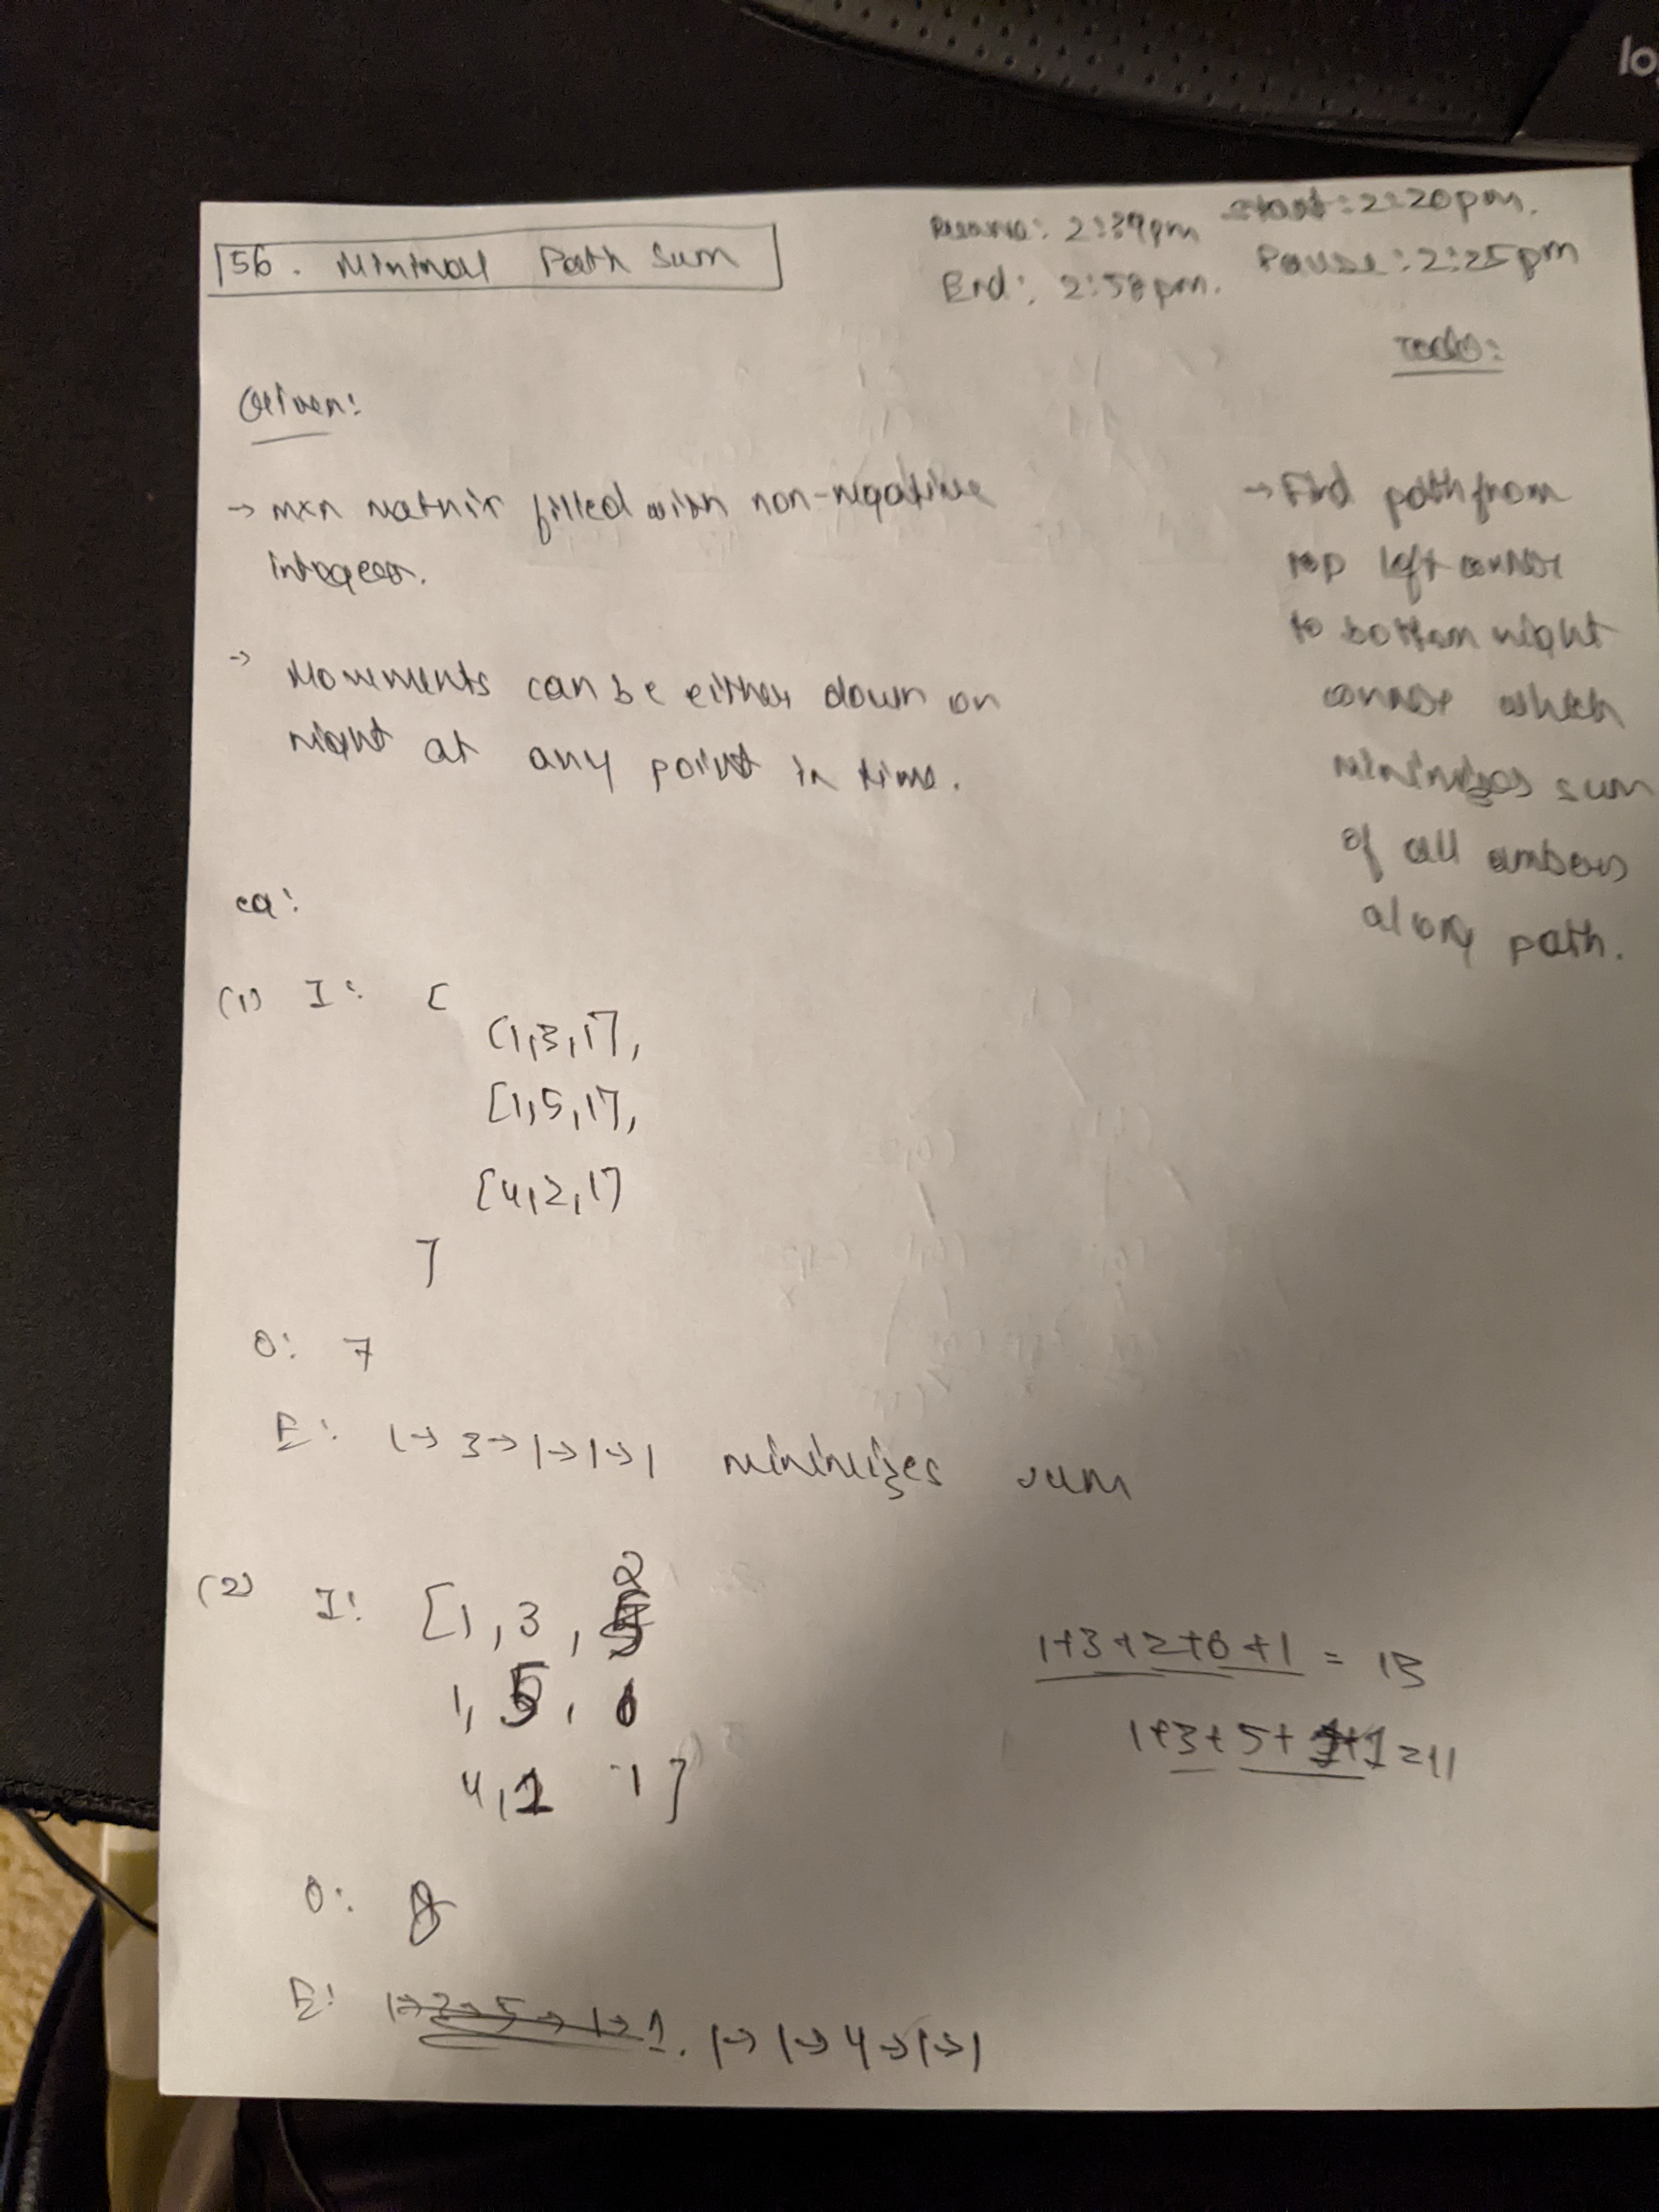 lo
156. Minimal Path Sum
Start: 2:20pm.
Pause: 2:25pm
Resume: 2:39pm
End: 2:58pm.
Todo:
Given:
→ mxn matrix filled with non-negative
integers.
→ Movements can be either down or
right at any point in time.
→ Find path from
top left corner
to bottom right
corner which
minimizes sum
of all numbers
along path.
eg:
(1) I: [
[1,3,1],
[1,5,1],
[4,2,1]
]
O: 7
E: 1→3→1→1→1 minimizes sum
(2) I: [1, 3, 2
1, 5, 6
4, 1 1]
1+3+2+6+1 = 13
1+3+5+1+1=11
O: 8
E: 1→3→5→1→1. 1→1→4→1→1